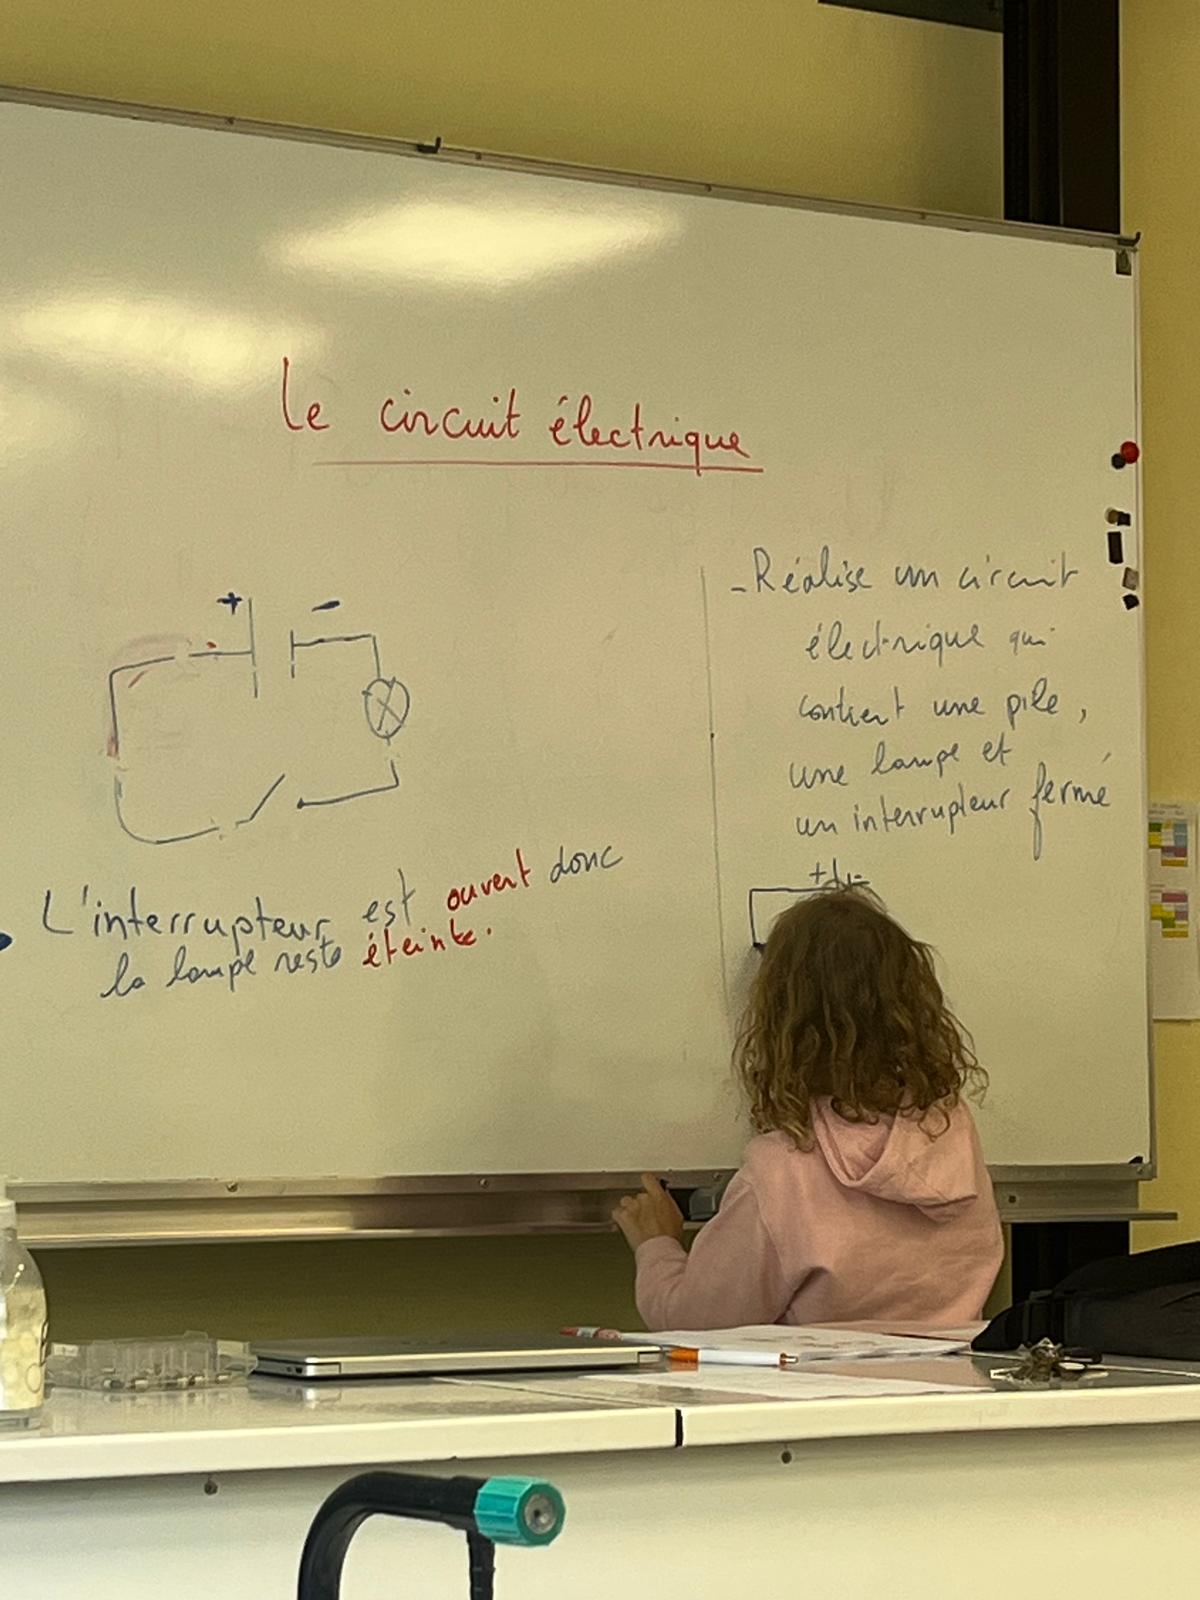 Le circuit électrique
+ -
L'interrupteur est ouvert donc
la lampe reste éteinte.
- Réalise un circuit
électrique qui
contient une pile,
une lampe et
un interrupteur fermé
+ -